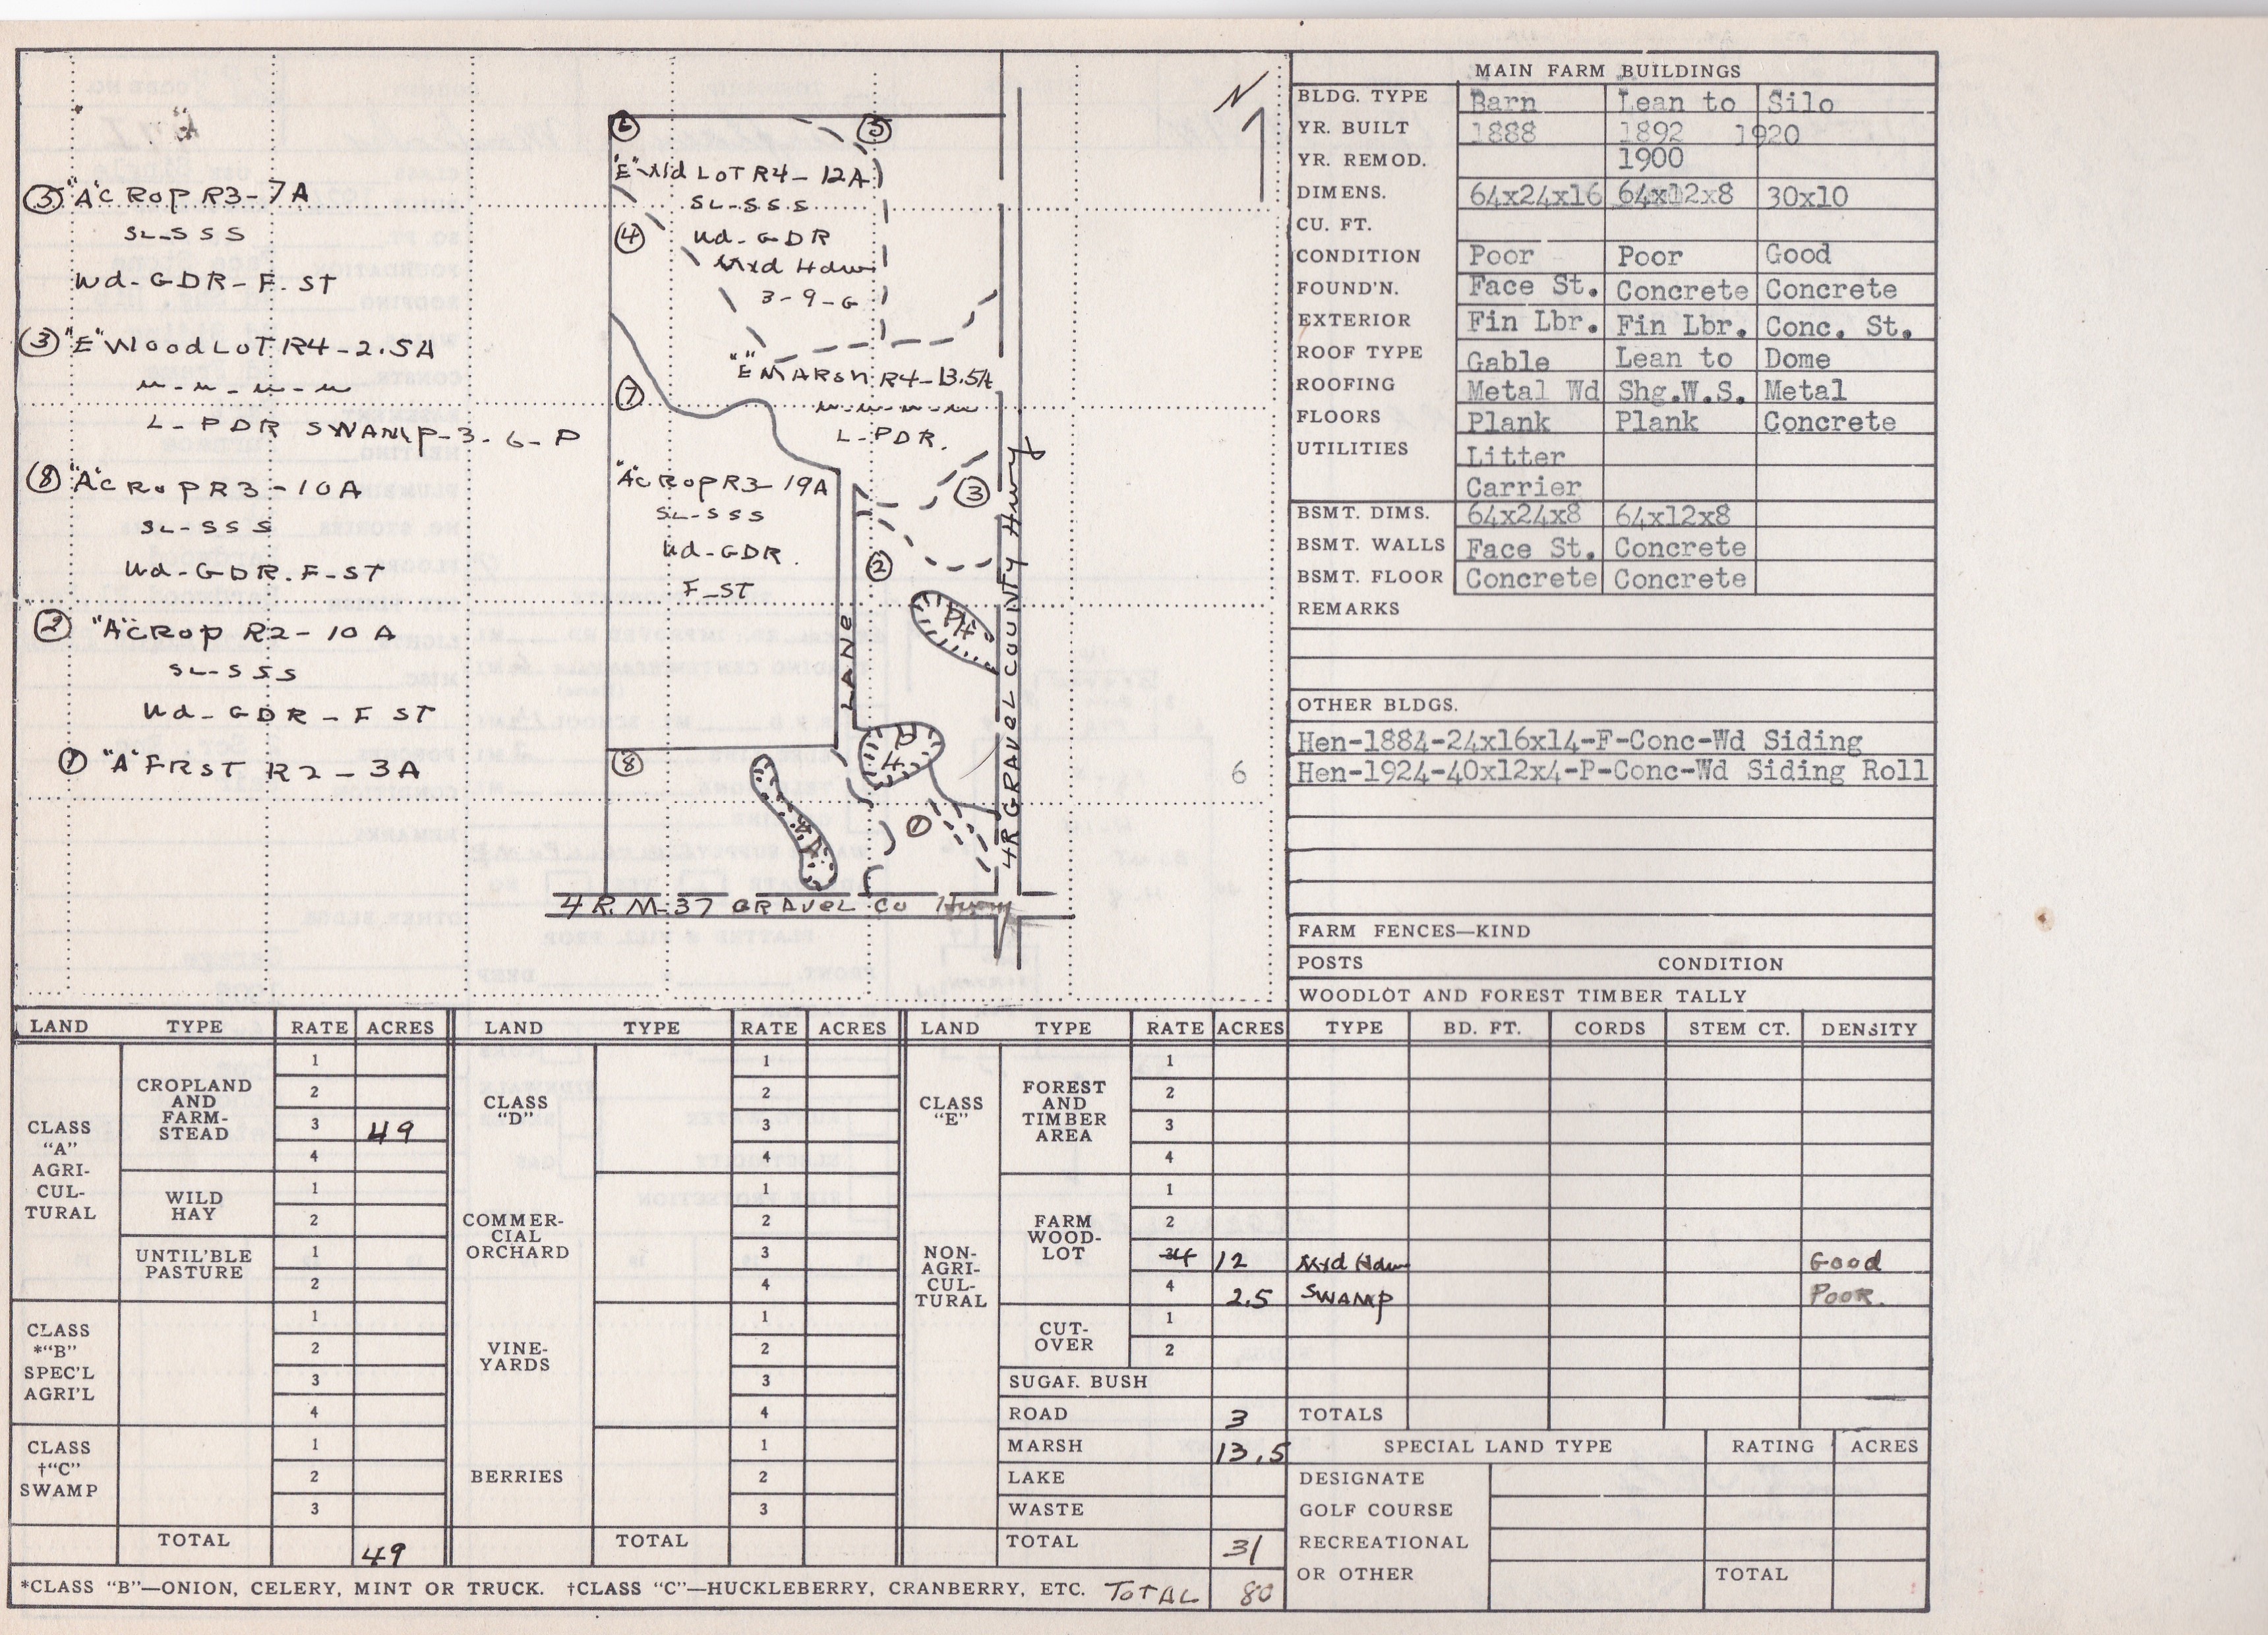 N
⑤ "A" CROP R3-7A
SL-SSS
Wd-GDR-F.ST
③ "E" WOODLOT R4-2.5A
M-M-M-M
L-PDR SWAMP-3-6-P
⑧ "A" CROP R3-10A
SL-SSS
Ud-GDR.F-ST
② "A" CROP R2-10A
SL-SSS
Ud-GDR-F ST
① "A" FRST R2-3A
⑥
⑤
"E" Wd LOT R4-12A
SL-SSS
④
Ud-GDR
Mxd Hdw
3-9-G
"E" MARSH R4-13.5A
⑦
M-M-M-M-M
L-PDR.
"A" CROP R3-19A
③
SL-SSS
Ud-GDR
②
F-ST
P4
LANE
P
4
⑧
①
6
4R GRAVEL COUNTY Hwy
4 R. M-37 GRAVEL CO Hwy
MAIN FARM BUILDINGS
BLDG. TYPE Barn Lean to Silo
YR. BUILT 1888 1892 1920
YR. REMOD. 1900
DIMENS. 64x24x16 64x12x8 30x10
CU. FT.
CONDITION Poor Poor Good
FOUND'N. Face St. Concrete Concrete
EXTERIOR Fin Lbr. Fin Lbr. Conc. St.
ROOF TYPE Gable Lean to Dome
ROOFING Metal Wd Shg.W.S. Metal
FLOORS Plank Plank Concrete
UTILITIES Litter
Carrier
BSMT. DIMS. 64x24x8 64x12x8
BSMT. WALLS Face St. Concrete
BSMT. FLOOR Concrete Concrete
REMARKS
OTHER BLDGS.
Hen-1884-24x16x14-F-Conc-Wd Siding
Hen-1924-40x12x4-P-Conc-Wd Siding Roll
FARM FENCES—KIND
POSTS CONDITION
WOODLOT AND FOREST TIMBER TALLY
LAND TYPE RATE ACRES LAND TYPE RATE ACRES LAND TYPE RATE ACRES TYPE BD. FT. CORDS STEM CT. DENSITY
CLASS
"A"
AGRI-
CUL-
TURAL
CROPLAND
AND
FARM-
STEAD
1
2
3 49
4
WILD
HAY
1
2
UNTIL'BLE
PASTURE
1
2
CLASS
*"B"
SPEC'L
AGRI'L
1
2
3
4
CLASS
†"C"
SWAMP
1
2
3
TOTAL 49
CLASS
"D"
1
2
3
4
COMMER-
CIAL
ORCHARD
1
2
3
4
VINE-
YARDS
1
2
3
4
BERRIES
1
2
3
TOTAL
CLASS
"E"
NON-
AGRI-
CUL-
TURAL
FOREST
AND
TIMBER
AREA
1
2
3
4
FARM
WOOD-
LOT
1
2
12 Mxd Hdw Good
4 2.5 SWAMP POOR.
CUT-
OVER
1
2
SUGAR BUSH
ROAD 3 TOTALS
MARSH 13.5 SPECIAL LAND TYPE RATING ACRES
LAKE DESIGNATE
WASTE GOLF COURSE
TOTAL 31 RECREATIONAL
OR OTHER TOTAL
*CLASS "B"—ONION, CELERY, MINT OR TRUCK. †CLASS "C"—HUCKLEBERRY, CRANBERRY, ETC. TOTAL 80